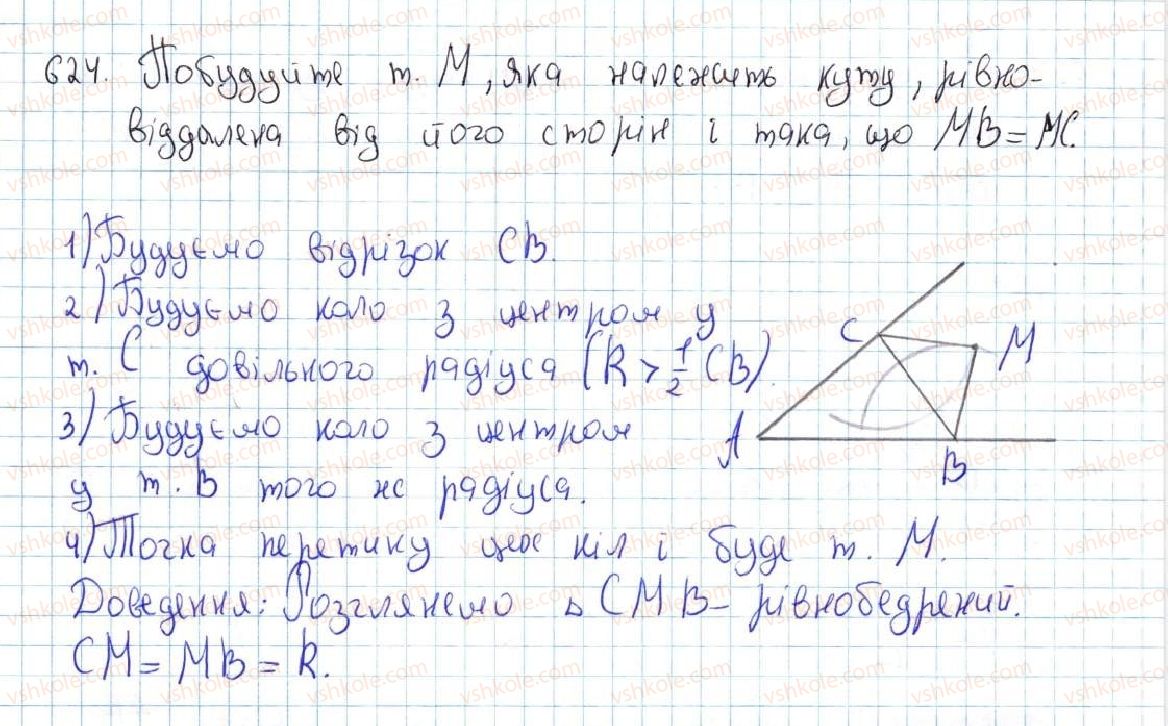 624. Побудуйте т. М, яка належить куту, рівно-
віддалена від його сторін і така, що MB = MC.
1) Будуємо відрізок CB.
2) Будуємо коло з центром у
т. C довільного радіуса (R > 1/2 CB).
3) Будуємо коло з центром
у т. B того же радіуса.
4) Точка перетику цих кіл і буде т. M.
Доведення: Розглянемо △ CMB - рівнобедрений.
CM = MB = R.
C
M
A
B
vshkole.com